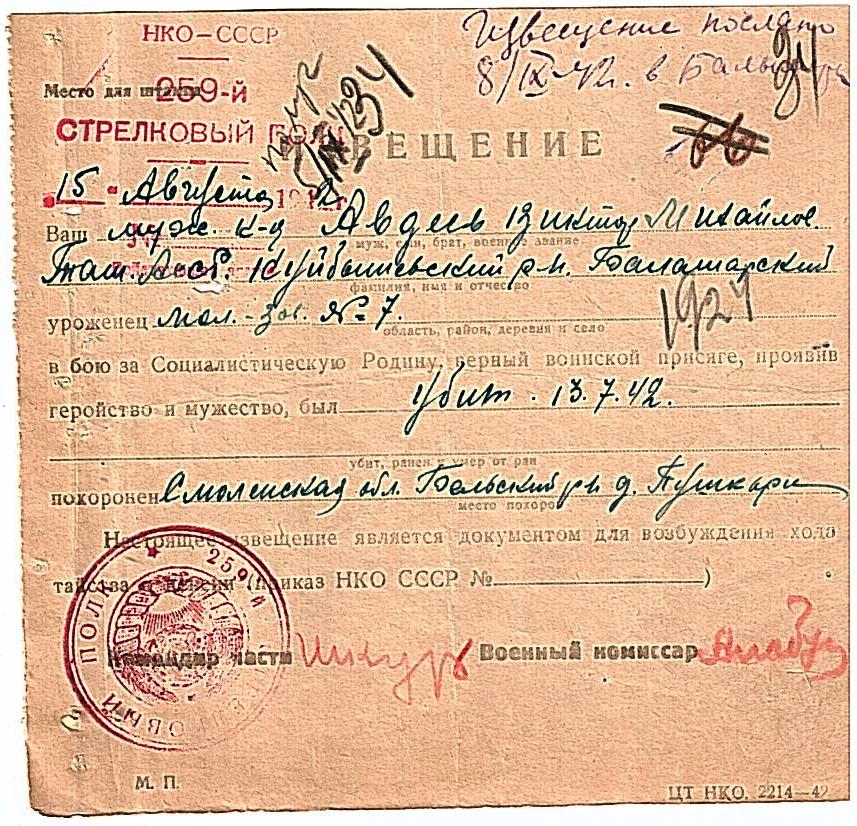 НКО–СССР
Извещение послано
8/IX 42 г. в
34
Место для штампа
259-й
СТРЕЛКОВЫЙ ПОЛК
ИЗВЕЩЕНИЕ
15 Августа 1942 г.
Ваш муж. к-ц Авдеев Виктор Михайлов.
муж, сын, брат, военное звание
Куйбышевский р-н.
фамилия, имя и отчество
уроженец мол. - зав. № 7.
1924
область, район, деревня и село
в бою за Социалистическую Родину, верный воинской присяге, проявив
геройство и мужество, был убит. 13.7.42.
убит, ранен и умер от ран
похоронен Смоленская обл. Бельский р-н д. Пушкари
место похорон
Настоящее извещение является документом для возбуждения хода
тайства о пенсии (приказ НКО СССР № )
259-й СТРЕЛКОВЫЙ ПОЛК
Командир части Военный комиссар
М. П.
ЦТ НКО. 2214—42